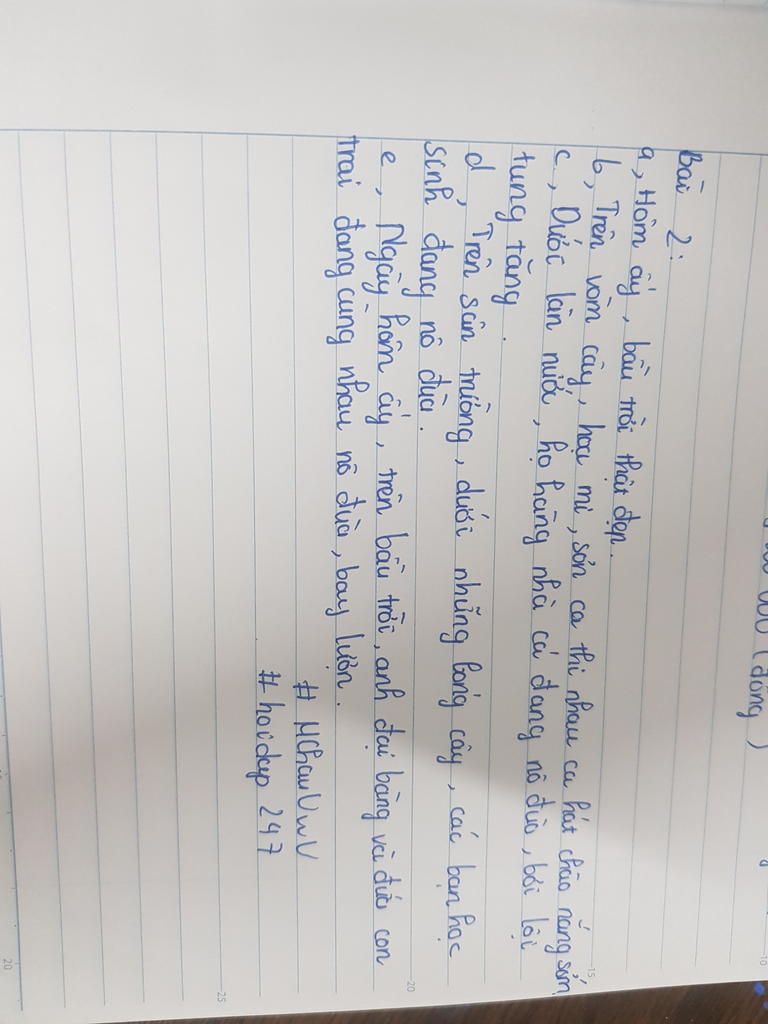 (đồng)
Bài 2:
a, Hôm ấy, bầu trời thật đẹp.
b, Trên vòm cây, họa mi, sơn ca thi nhau ca hát chào nắng sớm
c, Dước làn nước, họ hàng nhà cá đang nô đùa, bơi lội
tung tăng.
d, Trên sân trường, dưới những bóng cây, các bạn học
sinh đang nô đùa.
e, Ngày hôm ấy, trên bầu trời, anh đại bàng và đứa con
trai đang cùng nhau nô đùa, bay lượn.
# MChauUwU
# hoidap 247
10
15
20
25
20